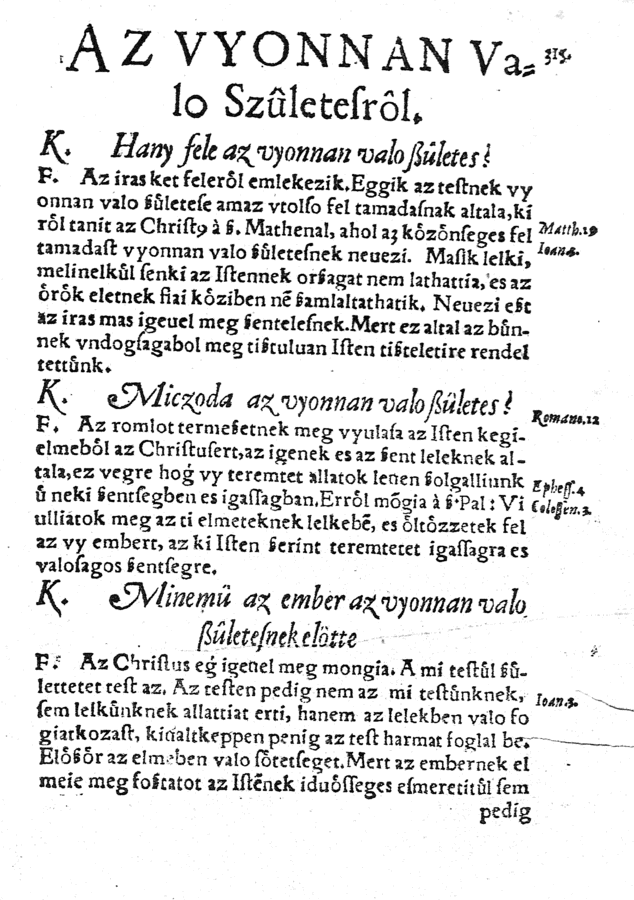 AZ VYONNAN Va= 315.
lo Szûletesrôl.
K. Hany fele az vyonnan valo ßûletes?
F. Az iras ket felerôl emlekezik. Eggik az testnek vy
onnan valo sûletese amaz vtolso fel tamadasnak altala, ki
rôl tanit az Christꝰ à s. Mathenal, ahol aʒ kôzônseges fel Matth. 19
tamadast vyonnan valo sûletesnek neuezi. Masik lelki, Ioan.
melinelkûl senki az Istennek orsagat nem lathattia, es az
ôrôk eletnek fiai kôziben nẽ samlaltathatik. Neuezi est
az iras mas igeuel meg sentelesnek. Mert ez altal az bûn-
nek vndogsagabol meg tistuluan Isten tisteletire rendel
tettûnk.
K. Miczoda az vyonnan valo ßûletes? Romano. 12
F. Az romlot termesetnek meg vyulasa az Isten kegi-
elmebôl az Christusert, az igenek es az sent leleknek al-
tala, ez vegre hoǵ vy teremtet allatok leuen solgalliunk Ephess. 4
û neki sentsegben es igassagban. Errôl mõgia à s. Pal: Vi Colossen. 3.
ulliatok meg az ti elmeteknek lelkebẽ, es ôltôzzetek fel
az vy embert, az ki Isten serint teremtetet igassagra es
valosagos sentsegre.
K. Minemû az ember az vyonnan valo
ßûletesnek elôtte
F. Az Christus eǵ igeuel meg mongia. A mi testûl sû-
lettetet test az. Az testen pedig nem az mi testûnknek, Ioan. 3.
sem leskûnknek allattiat erti, hanem az lelekben valo fo
giatkozast, kiualtkeppen penig az test harmat foglal be.
Elôsôr az elmeben valo sôtetseget. Mert az embernek el
meie meg fostatot az Istẽnek iduôsseges esmeretitûl sem
pedig